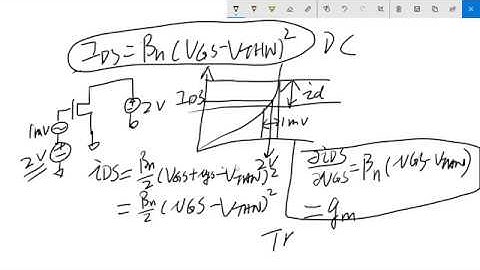 I_DS = β_n (V_GS - V_THN)^2 DC
I_DS
id
1mV
2V
1mV
2V
2V
i_DS = β_n/2 (V_GS + v_gs - V_THN)^2
= β_n/2 (v_GS - V_THN)^2
∂i_DS/∂v_GS = β_n (v_GS - V_THN)
= g_m
Tr